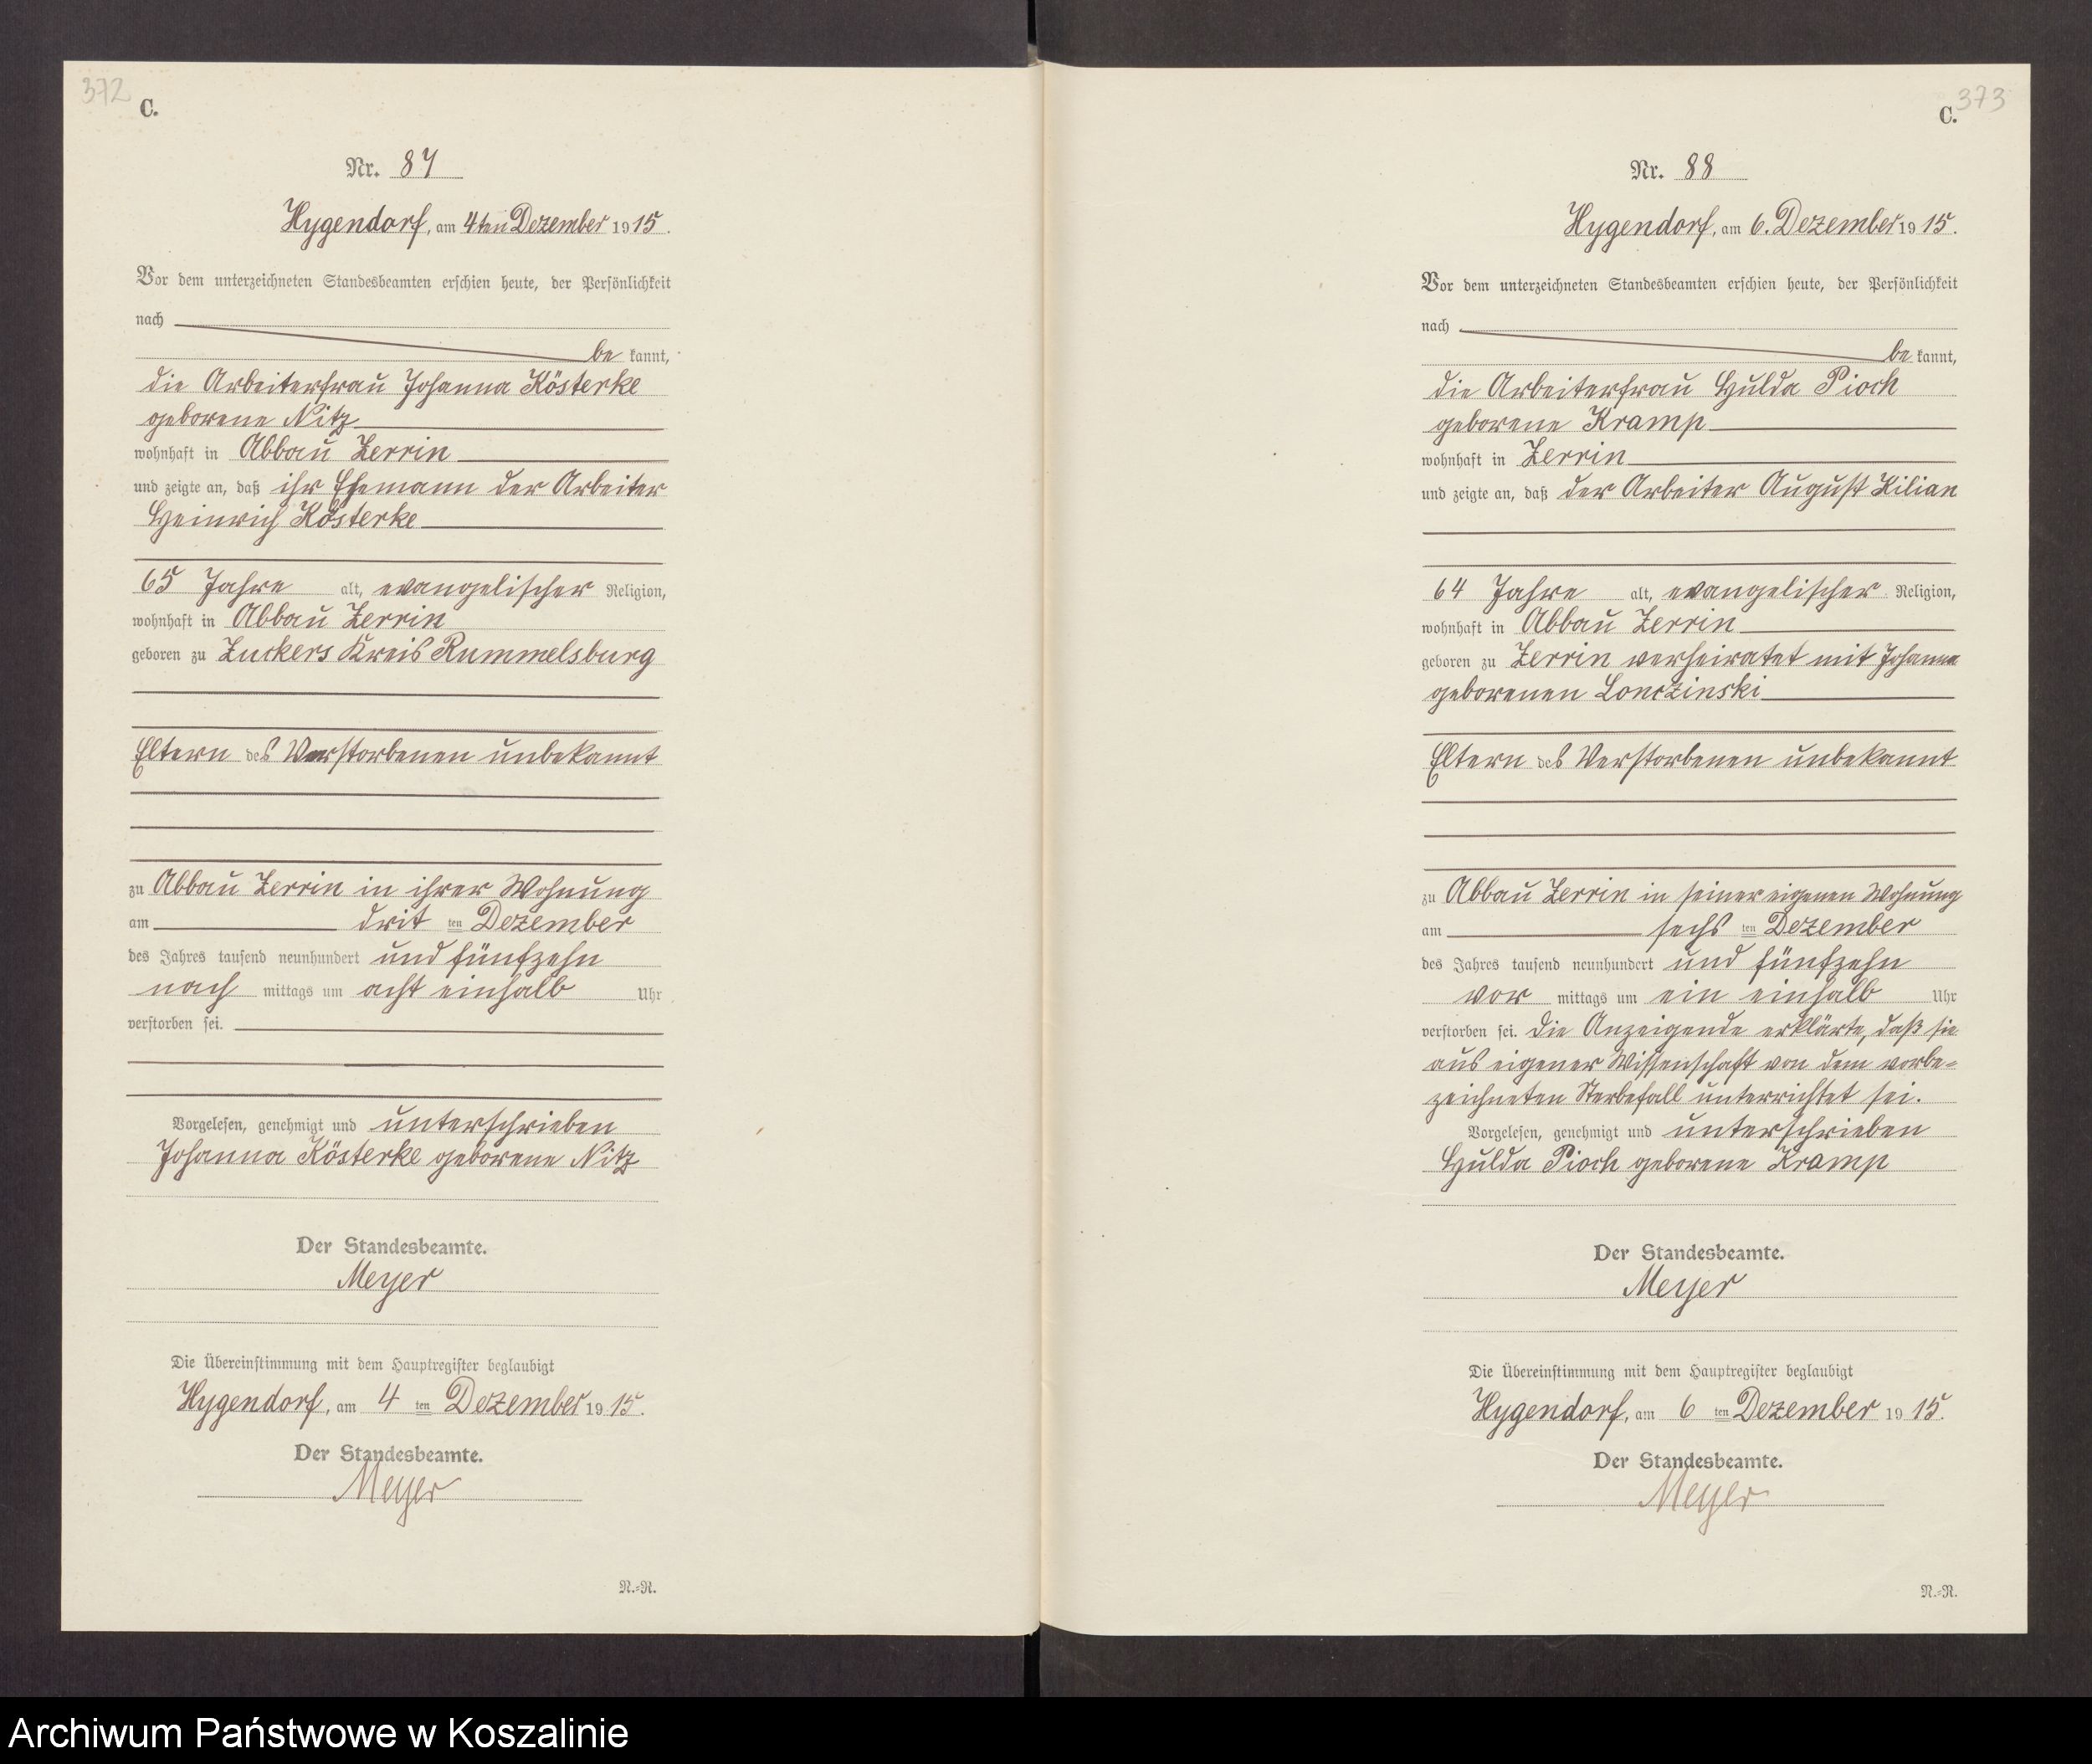 372
C.
Nr. 87
Hygendorf, am 4ten Dezember 1915.
Vor dem unterzeichneten Standesbeamten erschien heute, der Persönlichkeit
nach
be kannt,
die Arbeiterfrau Johanna Kösterke
geborene Nitz
wohnhaft in Abbau Zerrin
und zeigte an, daß ihr Ehemann der Arbeiter
Heinrich Kösterke
65 Jahre alt, evangelischer Religion,
wohnhaft in Abbau Zerrin
geboren zu Zuckers Kreis Rummelsburg
Eltern des Verstorbenen unbekannt
zu Abbau Zerrin in ihrer Wohnung
am drit ten Dezember
des Jahres tausend neunhundert und fünfzehn
nach mittags um acht einhalb Uhr
verstorben sei.
Vorgelesen, genehmigt und unterschrieben
Johanna Kösterke geborene Nitz
Der Standesbeamte.
Meyer
Die Übereinstimmung mit dem Hauptregister beglaubigt
Hygendorf, am 4 ten Dezember 1915.
Der Standesbeamte.
Meyer
N.=R.
373
C.
Nr. 88
Hygendorf, am 6. Dezember 1915.
Vor dem unterzeichneten Standesbeamten erschien heute, der Persönlichkeit
nach
be kannt,
die Arbeiterfrau Hulda Pioch
geborene Kramp
wohnhaft in Zerrin
und zeigte an, daß der Arbeiter August Kilian
64 Jahre alt, evangelischer Religion,
wohnhaft in Abbau Zerrin
geboren zu Zerrin verheiratet mit Johanna
geborenen Lonczinski
Eltern des Verstorbenen unbekannt
zu Abbau Zerrin in seiner eigenen Wohnung
am sechs ten Dezember
des Jahres tausend neunhundert und fünfzehn
vor mittags um ein einhalb Uhr
verstorben sei. Die Anzeigende erklärte, daß sie
aus eigener Wissenschaft von dem vorbe=
zeichneten Sterbefall unterrichtet sei.
Vorgelesen, genehmigt und unterschrieben
Hulda Pioch geborene Kramp
Der Standesbeamte.
Meyer
Die Übereinstimmung mit dem Hauptregister beglaubigt
Hygendorf, am 6 ten Dezember 1915.
Der Standesbeamte.
Meyer
N.=R.
Archiwum Państwowe w Koszalinie